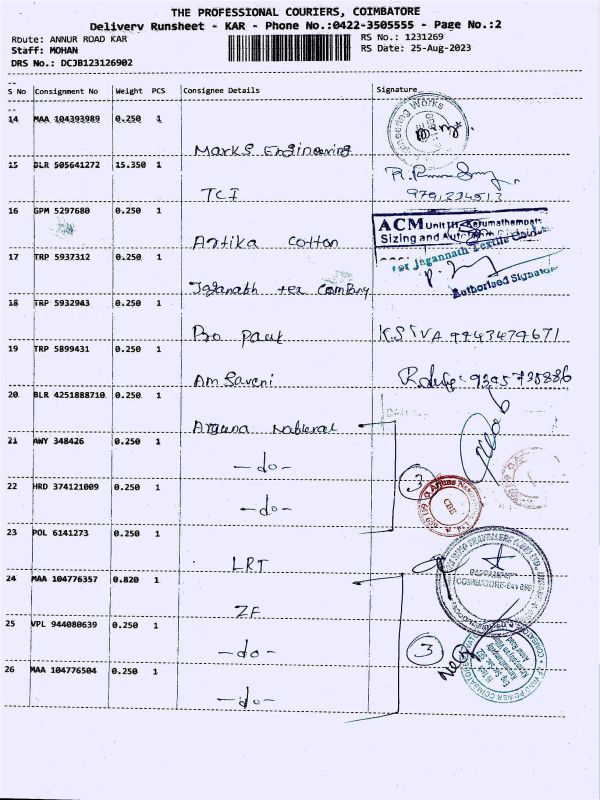 THE PROFESSIONAL COURIERS, COIMBATORE
Delivery Runsheet - KAR - Phone No.:0422-3505555 - Page No.:2
Route: ANNUR ROAD KAR
RS No.: 1231269
Staff: MOHAN
RS Date: 25-Aug-2023
DRS No.: DCJB123126902
S No Consignment No Weight PCS Consignee Details Signature
14 MAA 104393989 0.250 1
Marks Engineering
15 BLR 505641272 15.350 1
TCI
9791334513
16 GPM 5297680 0.250 1
Artika cotton
ACM Unit III, Karumathampatti
Sizing and
17 TRP 5937312 0.250 1
For Jagannath Textile
Jaganath tex company
Authorised Signator
18 TRP 5932943 0.250 1
Pro pack
K.SIVA 9943479671
19 TRP 5899431 0.250 1
Am Saveni
20 BLR 4251888710 0.250 1
Arjuna Natural
21 AWY 348426 0.250 1
-do-
3
22 HRD 374121009 0.250 1
-do-
CBE
23 POL 6141273 0.250 1
LRT
24 MAA 104776357 0.820 1
ZF
25 VPL 944080639 0.250 1
-do-
3
26 MAA 104776504 0.250 1
-do-